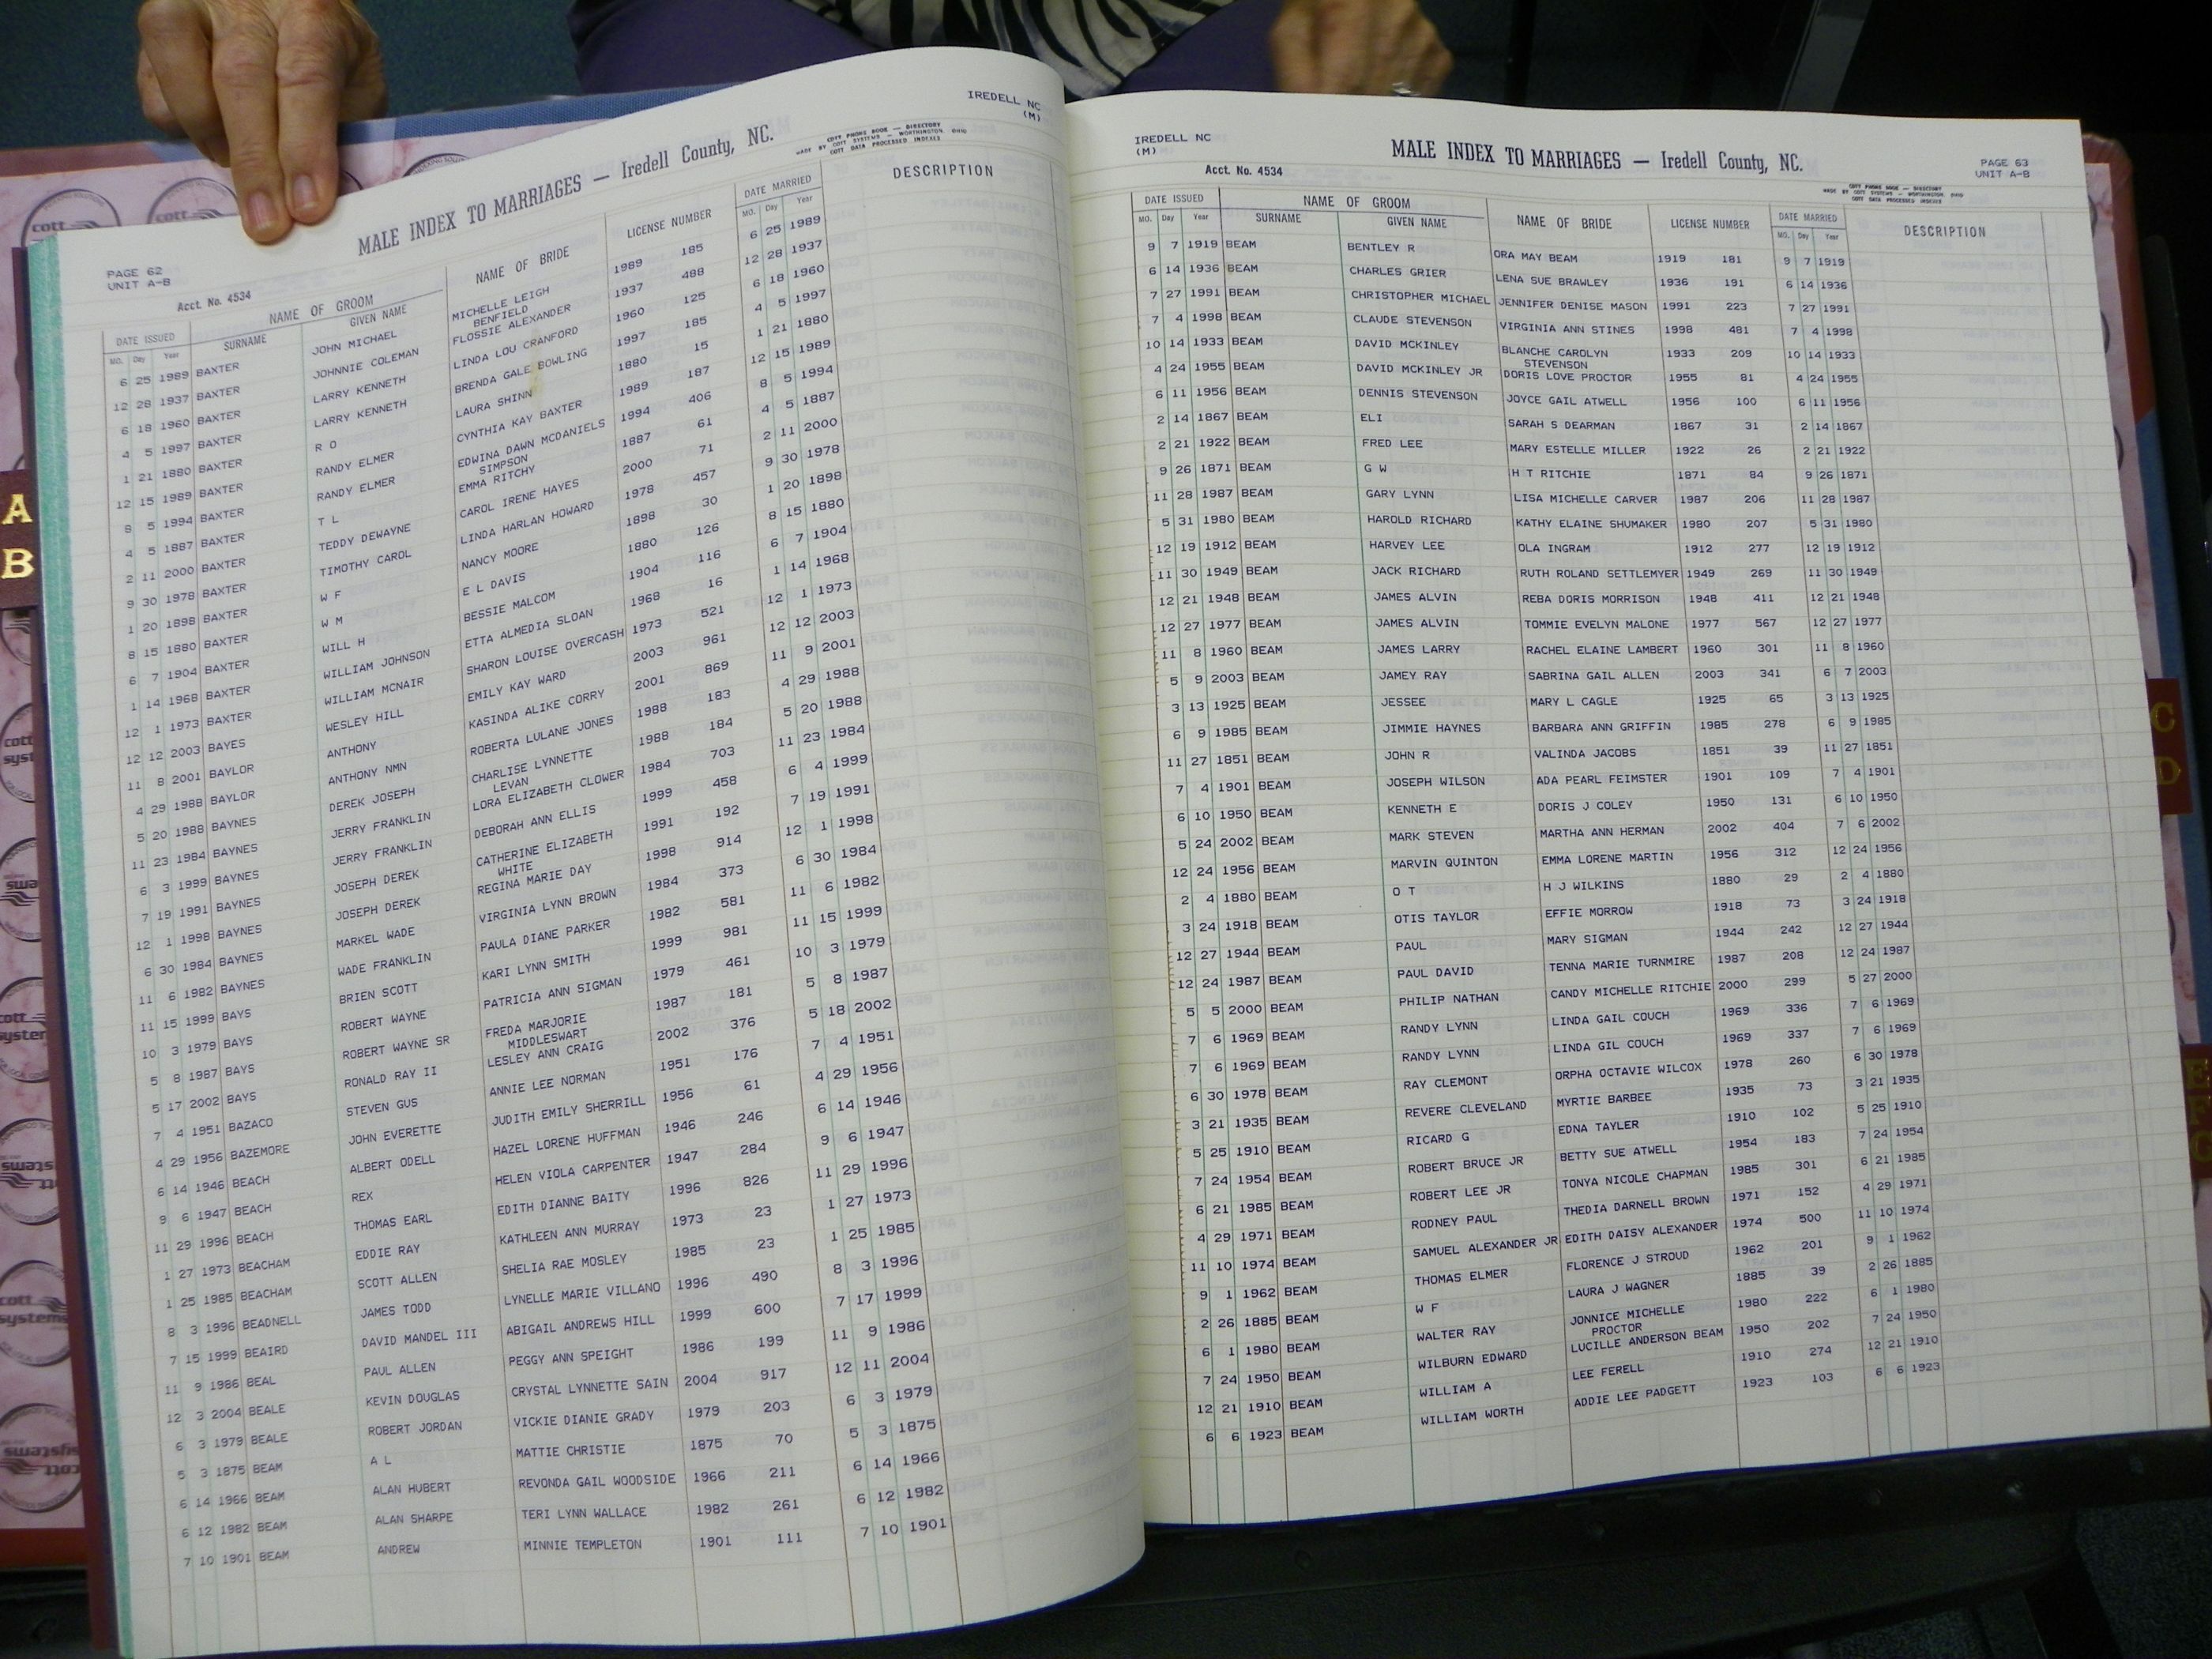 IREDELL NC
(M)
MALE INDEX TO MARRIAGES — Iredell County, NC.
COTT PHONE BOOK — DIRECTORY
MADE BY COTT SYSTEMS — WORTHINGTON OHIO
COTT DATA PROCESSED INDEXES
PAGE 62
UNIT A-B
Acct. No. 4534
DATE ISSUED NAME OF GROOM NAME OF BRIDE LICENSE NUMBER DATE MARRIED DESCRIPTION
MO. Day Year SURNAME GIVEN NAME MO. Day Year
6 25 1989 BAXTER JOHN MICHAEL MICHELLE LEIGH 1989 185 6 25 1989
BENFIELD
12 28 1937 BAXTER JOHNNIE COLEMAN FLOSSIE ALEXANDER 1937 488 12 28 1937
6 18 1960 BAXTER LARRY KENNETH LINDA LOU CRANFORD 1960 125 6 18 1960
4 5 1997 BAXTER LARRY KENNETH BRENDA GALE BOWLING 1997 185 4 5 1997
1 21 1880 BAXTER R O LAURA SHINN 1880 15 1 21 1880
12 15 1989 BAXTER RANDY ELMER CYNTHIA KAY BAXTER 1989 187 12 15 1989
8 5 1994 BAXTER RANDY ELMER EDWINA DAWN MCDANIELS 1994 406 8 5 1994
SIMPSON
4 5 1887 BAXTER T L EMMA RITCHY 1887 61 4 5 1887
2 11 2000 BAXTER TEDDY DEWAYNE CAROL IRENE HAYES 2000 71 2 11 2000
9 30 1978 BAXTER TIMOTHY CAROL LINDA HARLAN HOWARD 1978 457 9 30 1978
1 20 1898 BAXTER W F NANCY MOORE 1898 30 1 20 1898
8 15 1880 BAXTER W M E L DAVIS 1880 126 8 15 1880
6 7 1904 BAXTER WILL H BESSIE MALCOM 1904 116 6 7 1904
1 14 1968 BAXTER WILLIAM JOHNSON ETTA ALMEDIA SLOAN 1968 16 1 14 1968
12 1 1973 BAXTER WILLIAM MCNAIR SHARON LOUISE OVERCASH 1973 521 12 1 1973
12 12 2003 BAYES WESLEY HILL EMILY KAY WARD 2003 961 12 12 2003
11 8 2001 BAYLOR ANTHONY KASINDA ALIKE CORRY 2001 869 11 9 2001
4 29 1988 BAYLOR ANTHONY NMN ROBERTA LULANE JONES 1988 183 4 29 1988
5 20 1988 BAYNES DEREK JOSEPH CHARLISE LYNNETTE 1988 184 5 20 1988
LEVAN
11 23 1984 BAYNES JERRY FRANKLIN LORA ELIZABETH CLOWER 1984 703 11 23 1984
6 3 1999 BAYNES JERRY FRANKLIN DEBORAH ANN ELLIS 1999 458 6 4 1999
7 19 1991 BAYNES JOSEPH DEREK CATHERINE ELIZABETH 1991 192 7 19 1991
WHITE
12 1 1998 BAYNES JOSEPH DEREK REGINA MARIE DAY 1998 914 12 1 1998
6 30 1984 BAYNES MARKEL WADE VIRGINIA LYNN BROWN 1984 373 6 30 1984
11 6 1982 BAYNES WADE FRANKLIN PAULA DIANE PARKER 1982 581 11 6 1982
11 15 1999 BAYS BRIEN SCOTT KARI LYNN SMITH 1999 981 11 15 1999
10 3 1979 BAYS ROBERT WAYNE PATRICIA ANN SIGMAN 1979 461 10 3 1979
5 8 1987 BAYS ROBERT WAYNE SR FREDA MARJORIE 1987 181 5 8 1987
MIDDLESWART
5 17 2002 BAYS RONALD RAY II LESLEY ANN CRAIG 2002 376 5 18 2002
7 4 1951 BAZACO STEVEN GUS ANNIE LEE NORMAN 1951 176 7 4 1951
4 29 1956 BAZEMORE JOHN EVERETTE JUDITH EMILY SHERRILL 1956 61 4 29 1956
6 14 1946 BEACH ALBERT ODELL HAZEL LORENE HUFFMAN 1946 246 6 14 1946
9 6 1947 BEACH REX HELEN VIOLA CARPENTER 1947 284 9 6 1947
11 29 1996 BEACH THOMAS EARL EDITH DIANNE BAITY 1996 826 11 29 1996
1 27 1973 BEACHAM EDDIE RAY KATHLEEN ANN MURRAY 1973 23 1 27 1973
1 25 1985 BEACHAM SCOTT ALLEN SHELIA RAE MOSLEY 1985 23 1 25 1985
8 3 1996 BEADNELL JAMES TODD LYNELLE MARIE VILLANO 1996 490 8 3 1996
7 15 1999 BEAIRD DAVID MANDEL III ABIGAIL ANDREWS HILL 1999 600 7 17 1999
11 9 1986 BEAL PAUL ALLEN PEGGY ANN SPEIGHT 1986 199 11 9 1986
12 3 2004 BEALE KEVIN DOUGLAS CRYSTAL LYNNETTE SAIN 2004 917 12 11 2004
6 3 1979 BEALE ROBERT JORDAN VICKIE DIANIE GRADY 1979 203 6 3 1979
5 3 1875 BEAM A L MATTIE CHRISTIE 1875 70 5 3 1875
6 14 1966 BEAM ALAN HUBERT REVONDA GAIL WOODSIDE 1966 211 6 14 1966
6 12 1982 BEAM ALAN SHARPE TERI LYNN WALLACE 1982 261 6 12 1982
7 10 1901 BEAM ANDREW MINNIE TEMPLETON 1901 111 7 10 1901
IREDELL NC
(M)
Acct. No. 4534
MALE INDEX TO MARRIAGES — Iredell County, NC.
PAGE 63
UNIT A-B
COTT PHONE BOOK — DIRECTORY
MADE BY COTT SYSTEMS — WORTHINGTON OHIO
COTT DATA PROCESSED INDEXES
DATE ISSUED NAME OF GROOM NAME OF BRIDE LICENSE NUMBER DATE MARRIED DESCRIPTION
MO. Day Year SURNAME GIVEN NAME MO. Day Year
9 7 1919 BEAM BENTLEY R ORA MAY BEAM 1919 181 9 7 1919
6 14 1936 BEAM CHARLES GRIER LENA SUE BRAWLEY 1936 191 6 14 1936
7 27 1991 BEAM CHRISTOPHER MICHAEL JENNIFER DENISE MASON 1991 223 7 27 1991
7 4 1998 BEAM CLAUDE STEVENSON VIRGINIA ANN STINES 1998 481 7 4 1998
10 14 1933 BEAM DAVID MCKINLEY BLANCHE CAROLYN 1933 209 10 14 1933
STEVENSON
4 24 1955 BEAM DAVID MCKINLEY JR DORIS LOVE PROCTOR 1955 81 4 24 1955
6 11 1956 BEAM DENNIS STEVENSON JOYCE GAIL ATWELL 1956 100 6 11 1956
2 14 1867 BEAM ELI SARAH S DEARMAN 1867 31 2 14 1867
2 21 1922 BEAM FRED LEE MARY ESTELLE MILLER 1922 26 2 21 1922
9 26 1871 BEAM G W H T RITCHIE 1871 84 9 26 1871
11 28 1987 BEAM GARY LYNN LISA MICHELLE CARVER 1987 206 11 28 1987
5 31 1980 BEAM HAROLD RICHARD KATHY ELAINE SHUMAKER 1980 207 5 31 1980
12 19 1912 BEAM HARVEY LEE OLA INGRAM 1912 277 12 19 1912
11 30 1949 BEAM JACK RICHARD RUTH ROLAND SETTLEMYER 1949 269 11 30 1949
12 21 1948 BEAM JAMES ALVIN REBA DORIS MORRISON 1948 411 12 21 1948
12 27 1977 BEAM JAMES ALVIN TOMMIE EVELYN MALONE 1977 567 12 27 1977
11 8 1960 BEAM JAMES LARRY RACHEL ELAINE LAMBERT 1960 301 11 8 1960
5 9 2003 BEAM JAMEY RAY SABRINA GAIL ALLEN 2003 341 6 7 2003
3 13 1925 BEAM JESSEE MARY L CAGLE 1925 65 3 13 1925
6 9 1985 BEAM JIMMIE HAYNES BARBARA ANN GRIFFIN 1985 278 6 9 1985
11 27 1851 BEAM JOHN R VALINDA JACOBS 1851 39 11 27 1851
7 4 1901 BEAM JOSEPH WILSON ADA PEARL FEIMSTER 1901 109 7 4 1901
6 10 1950 BEAM KENNETH E DORIS J COLEY 1950 131 6 10 1950
5 24 2002 BEAM MARK STEVEN MARTHA ANN HERMAN 2002 404 7 6 2002
12 24 1956 BEAM MARVIN QUINTON EMMA LORENE MARTIN 1956 312 12 24 1956
2 4 1880 BEAM O T H J WILKINS 1880 29 2 4 1880
3 24 1918 BEAM OTIS TAYLOR EFFIE MORROW 1918 73 3 24 1918
12 27 1944 BEAM PAUL MARY SIGMAN 1944 242 12 27 1944
12 24 1987 BEAM PAUL DAVID TENNA MARIE TURNMIRE 1987 208 12 24 1987
5 5 2000 BEAM PHILIP NATHAN CANDY MICHELLE RITCHIE 2000 299 5 27 2000
7 6 1969 BEAM RANDY LYNN LINDA GAIL COUCH 1969 336 7 6 1969
7 6 1969 BEAM RANDY LYNN LINDA GIL COUCH 1969 337 7 6 1969
6 30 1978 BEAM RAY CLEMONT ORPHA OCTAVIE WILCOX 1978 260 6 30 1978
3 21 1935 BEAM REVERE CLEVELAND MYRTIE BARBEE 1935 73 3 21 1935
5 25 1910 BEAM RICARD G EDNA TAYLER 1910 102 5 25 1910
7 24 1954 BEAM ROBERT BRUCE JR BETTY SUE ATWELL 1954 183 7 24 1954
6 21 1985 BEAM ROBERT LEE JR TONYA NICOLE CHAPMAN 1985 301 6 21 1985
4 29 1971 BEAM RODNEY PAUL THEDIA DARNELL BROWN 1971 152 4 29 1971
11 10 1974 BEAM SAMUEL ALEXANDER JR EDITH DAISY ALEXANDER 1974 500 11 10 1974
9 1 1962 BEAM THOMAS ELMER FLORENCE J STROUD 1962 201 9 1 1962
2 26 1885 BEAM W F LAURA J WAGNER 1885 39 2 26 1885
6 1 1980 BEAM WALTER RAY JONNICE MICHELLE 1980 222 6 1 1980
PROCTOR
7 24 1950 BEAM WILBURN EDWARD LUCILLE ANDERSON BEAM 1950 202 7 24 1950
12 21 1910 BEAM WILLIAM A LEE FERELL 1910 274 12 21 1910
6 6 1923 BEAM WILLIAM WORTH ADDIE LEE PADGETT 1923 103 6 6 1923
A
B
C
D
cott
cott
cott
systems